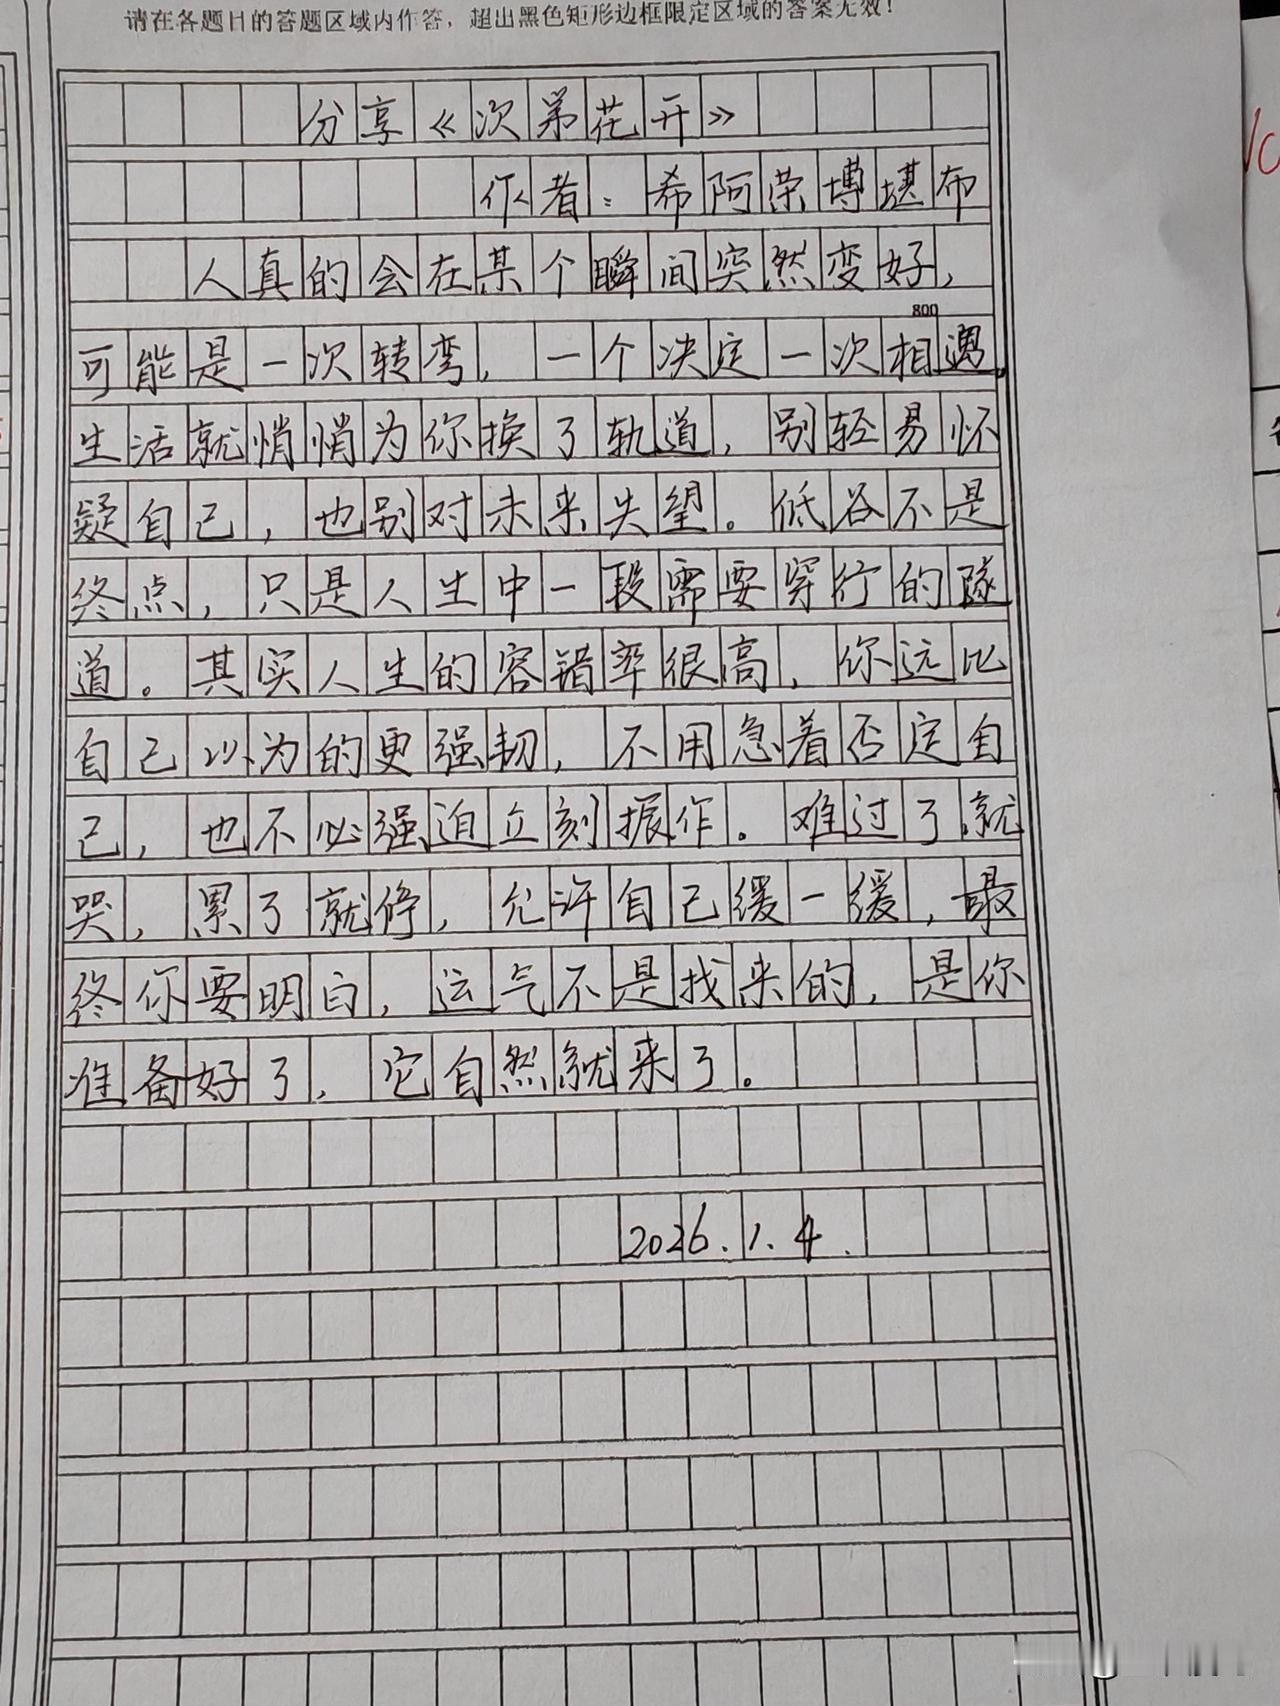 请在各题目的答题区域内作答，超出黑色矩形边框限定区域的答案无效！
分享《次第花开》
作者：希阿荣博堪布
人真的会在某个瞬间突然变好，
800
可能是一次转弯，一个决定一次相遇。
生活就悄悄为你换了轨道，别轻易怀
疑自己，也别对未来失望。低谷不是
终点，只是人生中一段需要穿行的隧
道。其实人生的容错率很高，你远比
自己以为的更强韧，不用急着否定自
己，也不必强迫立刻振作。难过了就
哭，累了就停，允许自己缓一缓，最
终你要明白，运气不是找来的，是你
准备好了，它自然就来了。
2026.1.4.